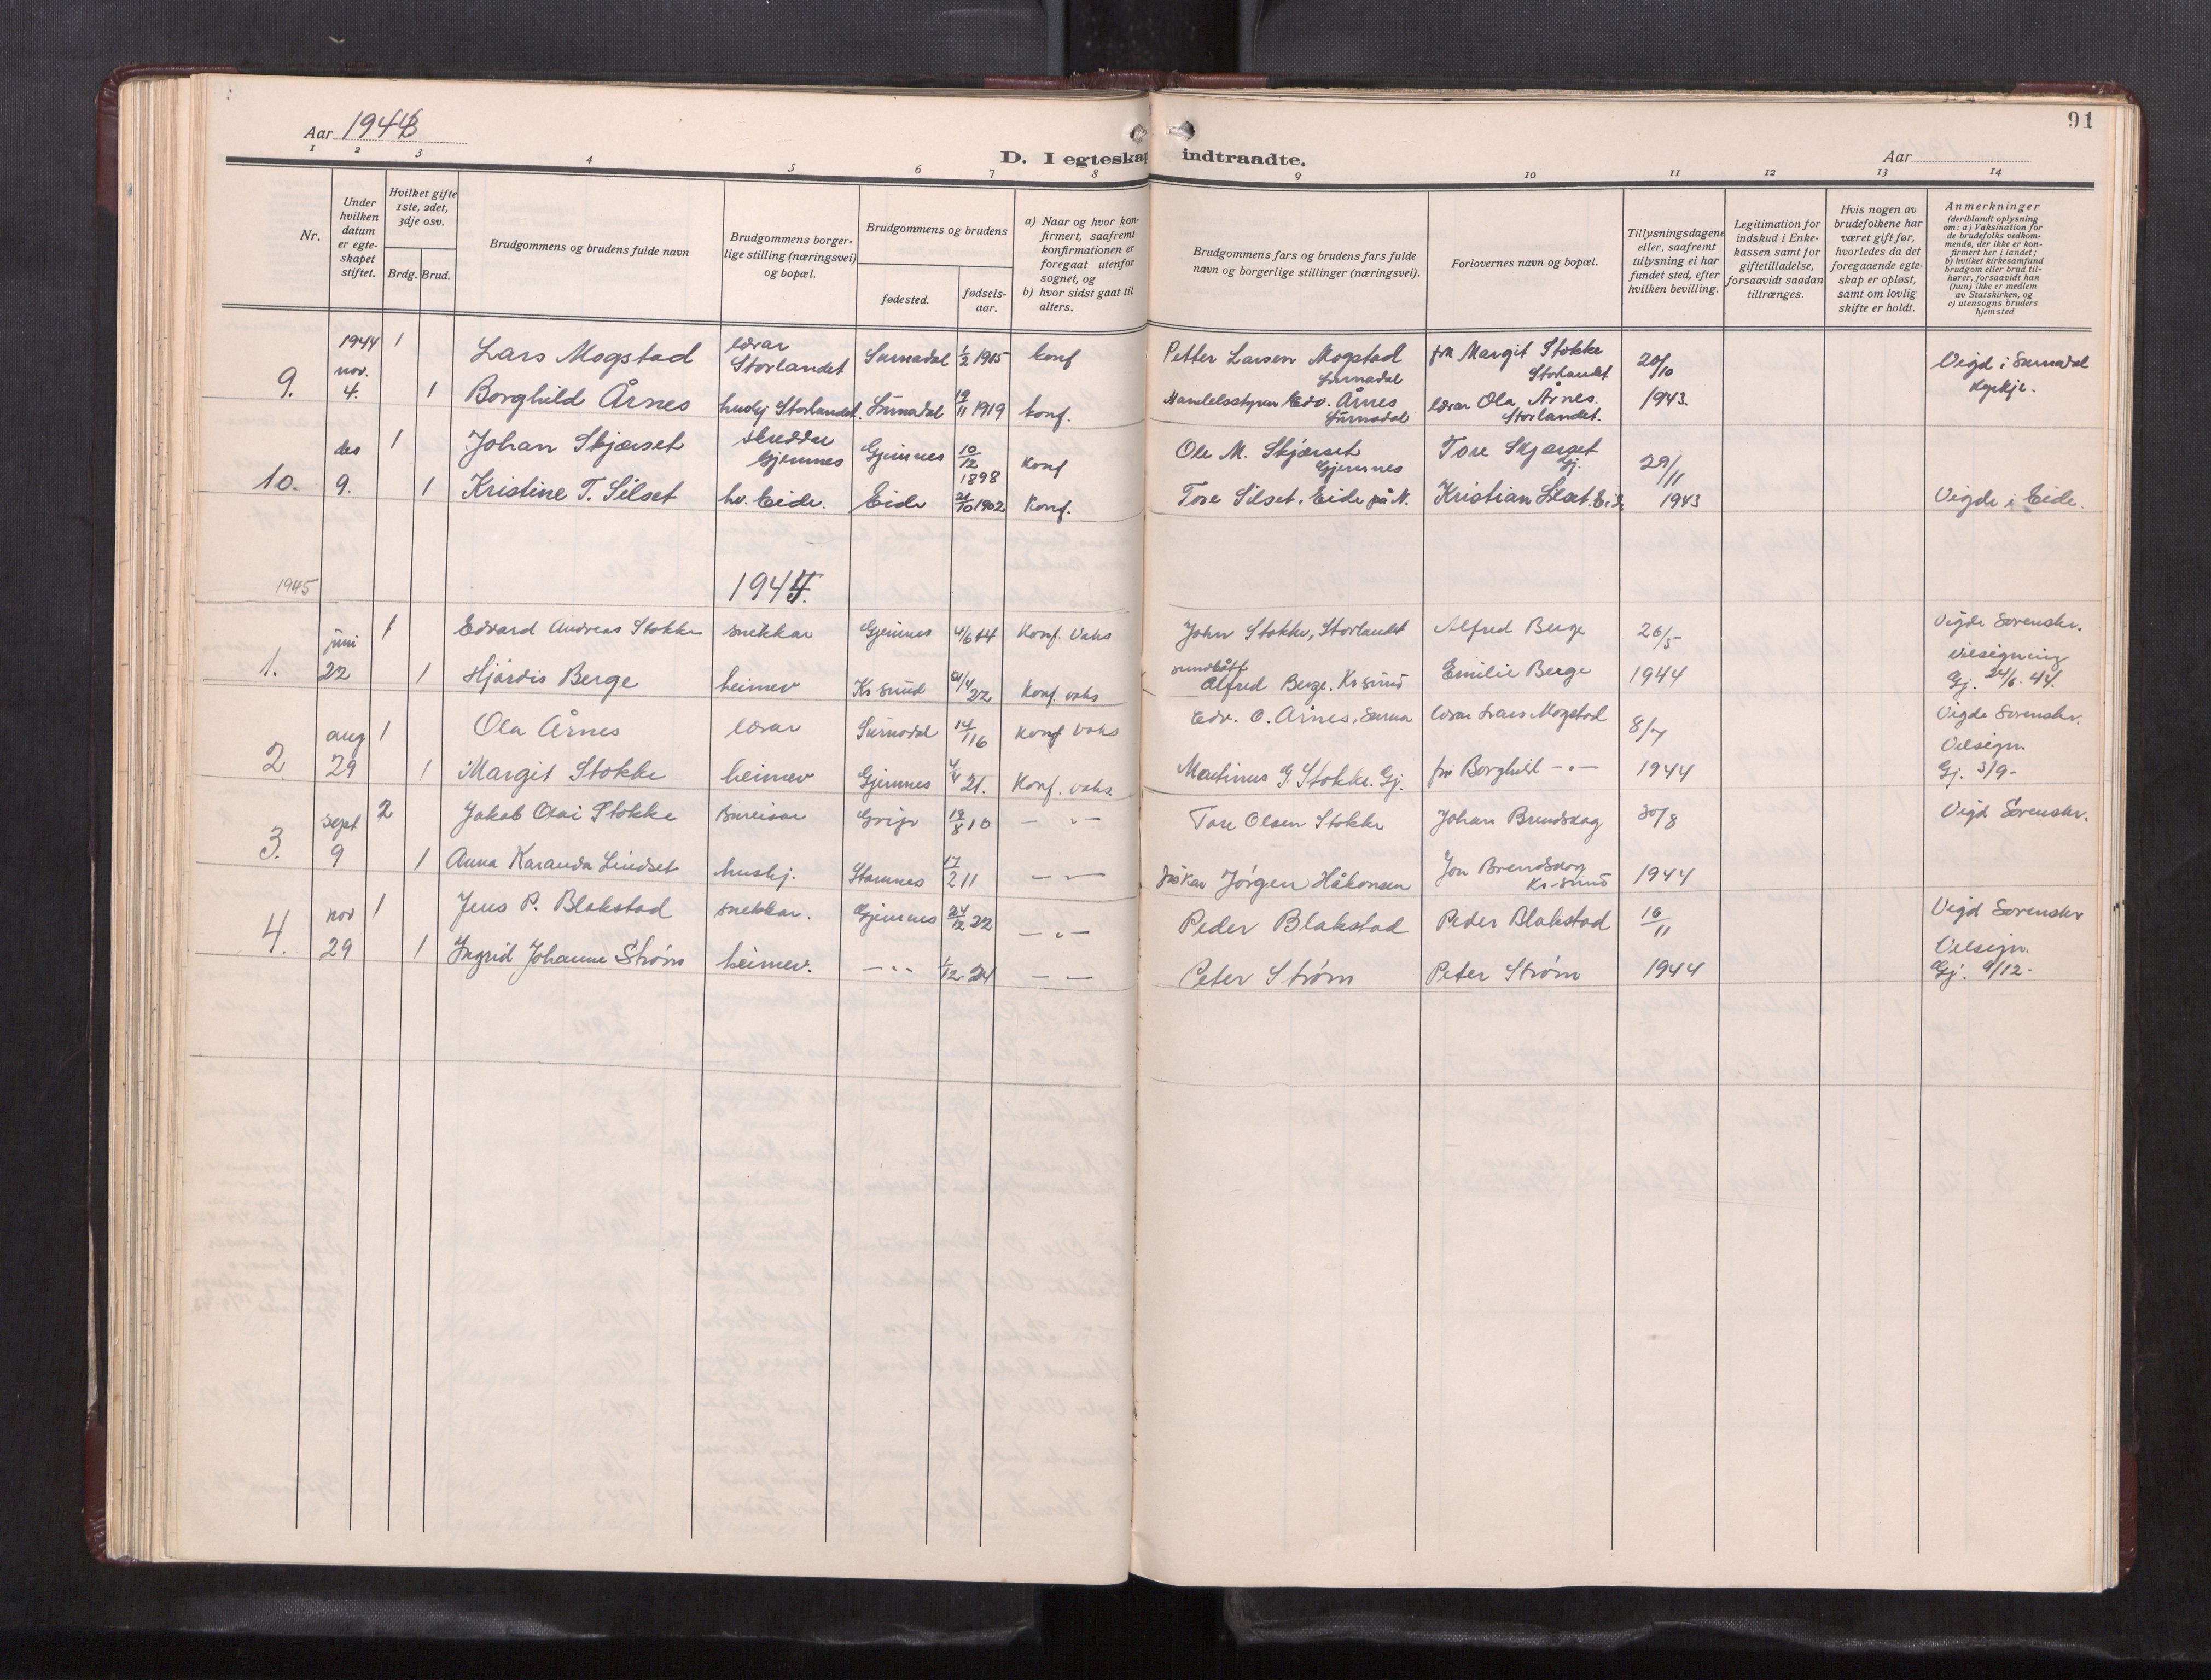 91
Aar 1943
D. I egteskap indtraadte.
Aar
1 2 3 4 5 6 7 8 9 10 11 12 13 14
Nr.
Under hvilken datum er egteskapet stiftet.
Hvilket gifte 1ste, 2det, 3dje osv.
Brdg. Brud.
Brudgommens og brudens fulde navn
Brudgommens borgerlige stilling (næringsvei) og bopæl.
Brudgommens og brudens
fødested.
fødselsaar.
a) Naar og hvor konfirmert, saafremt konfirmationen er foregaat utenfor sognet, og
b) hvor sidst gaat til alters.
Brudgommens fars og brudens fars fulde navn og borgerlige stillinger (næringsvei).
Forlovernes navn og bopæl.
Tillysningsdagene eller, saafremt tillysning ei har fundet sted, efter hvilken bevilling.
Legitimation for indskud i Enkekassen samt for giftetilladelse, forsaavidt saadan tiltrænges.
Hvis nogen av brudefolkene har været gift før, hvorledes da det foregaaende egteskap er opløst, samt om lovlig skifte er holdt.
Anmerkninger
(deriblandt oplysning om: a) Vaksination for de brudefolks vedkommende, der ikke er konfirmert her i landet;
b) hvilket kirkesamfund brudgom eller brud tilhører, forsaavidt han (hun) ikke er medlem av Statskirken, og
c) utensogns bruders hjemsted
1944 1 Lars Mogstad lærar Storlandet Surnadal 1/2 1915 konf Petter Larsen Mogstad Surnadal frk Margit Stokke Storlandet 20/10 Vigd i Surnadal kyrkje.
9. nov. 4. 1 Borghild Årnes hushj Storlandet. Surnadal 19/11 1919 konf. Handelsstyrer Edv. Årnes Surnadal lærar Ola Årnes. Storlandet. 1943.
des 1 Johan Skjærset skreddar Gjemnes Gjemnes 10/12 1898 Konf Ole M. Skjærset Gjemnes Tore Skjærset Gj. 29/11
10. 9. 1 Kristine T. Silset hv. Eide. Eide 1902 Konf. Tore Silset. Eide på N. Kristian Silset. Eide 1943 Vigde i Eide.
1945 1944.
juni 1 Edvard Andreas Stokke snekkar Gjemnes 4/6 14 Konf. Vaks John Stokke, Storlandet Alfred Berge 26/5 Vigde Sorenskr.
1. 22 1 Hjördis Berge heimev Kr sund 21/4 22 Konf. vaks Alfred Berge. Kr sund Emilie Berge 1944 Velsigning Gj. 24/6. 44.
aug 1 Ola Årnes lærar Surnadal 14/1 16 Konf Vaks Edv. O. Årnes, Surna lærar Lars Mogstad 8/7 Vigde Sorenskr.
2 29 1 Margit Stokke heimev Gjemnes 21. Konf. vaks Martinus G Stokke. Gj. fru Borghild — " — 1944 Velsign. Gj. 3/9-
sept 2 Jakob Olai Stokke bureisar Grip 19/8 10 — " — Tore Olsen Stokke Johan Brendskag 30/8 Vigd Sorenskr.
3. 9 1 Anna Karanda Lindset hushj. Stamnes 17/2 11 — " — fiskar Jørgen Håkonsen Jon Brendskag Kr-sund 1944
nov 1 Jens P. Blakstad snekkar. Gjemnes 24/12 22 — " — Peder Blakstad Peder Blakstad 16/11 Vigd Sorenskr
4. 29 1 Ingrid Johanne Strøm heimev. — " — 1/12. 24 — " — Peter Strøm Peter Strøm 1944 Velsign. Gj. 9/12-